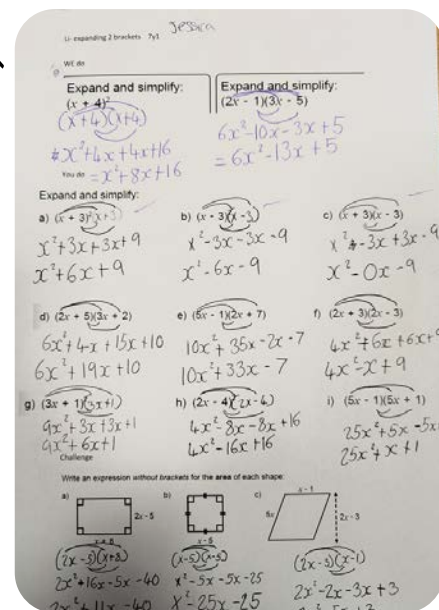 Jessica
Li- expanding 2 brackets 7y1
WE do
Expand and simplify:
(x + 4)²
(x+4)(x+4)
x²+4x+4x+16
=x²+8x+16
Expand and simplify:
(2x - 1)(3x - 5)
6x²-10x-3x+5
=6x²-13x+5
You do
Expand and simplify:
a) (x + 3)²(x+3)
x²+3x+3x+9
x²+6x+9
b) (x - 3)(x-3)
x²-3x-3x-9
x²-6x-9
c) (x + 3)(x - 3)
x²-3x+3x-9
x²-0x-9
d) (2x + 5)(3x + 2)
6x²+4x+15x+10
6x²+19x+10
e) (5x - 1)(2x + 7)
10x²+35x-2x-7
10x²+33x-7
f) (2x + 3)(2x - 3)
4x²+6x+6x+9
4x²-x+9
g) (3x + 1)(3x+1)
9x²+3x+3x+1
9x²+6x+1
h) (2x - 4)(2x-4)
4x²-8x-8x+16
4x²-16x+16
i) (5x - 1)(5x + 1)
25x²+5x-5x
25x²+x+1
Challenge
Write an expression without brackets for the area of each shape:
a)
2x - 5
x + 8
(2x-5)(x+8)
2x²+16x-5x-40
2x²+11x-40
b)
x - 5
(x-5)(x-5)
x²-5x-5x-25
x²-25x-25
c)
x - 1
6x
2x - 3
(2x-3)(x-1)
2x²-2x-3x+3